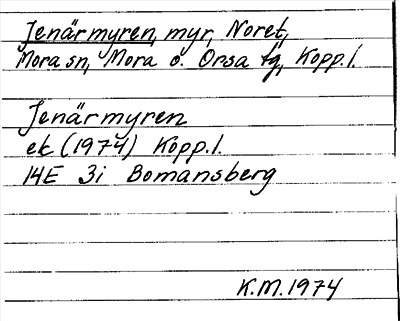 Jenärmyren, myr, Noret,
Mora sn, Mora o. Orsa tg, Kopp.l.
Jenärmyren
ek (1974) Kopp.l.
14E 3i Bomansberg
K.M. 1974